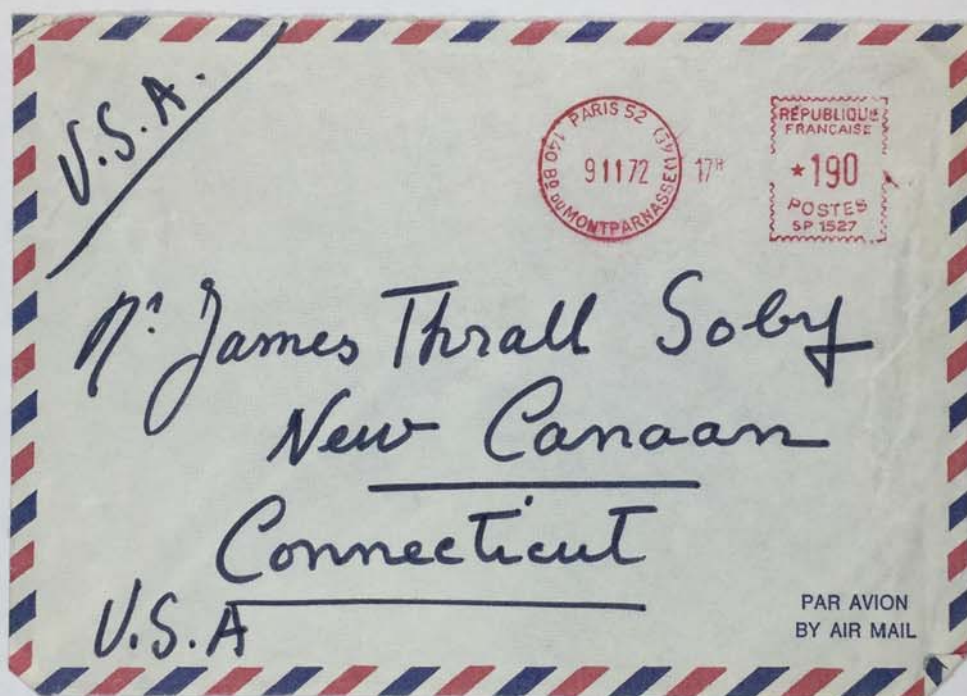 U.S.A.
PARIS 52 (14e)
140 BD DU MONTPARNASSE
9 11 72 17H
RÉPUBLIQUE
FRANCAISE
*190
POSTES
SP 1527
Mr James Thrall Soby
New Canaan
Connecticut
U.S.A
PAR AVION
BY AIR MAIL